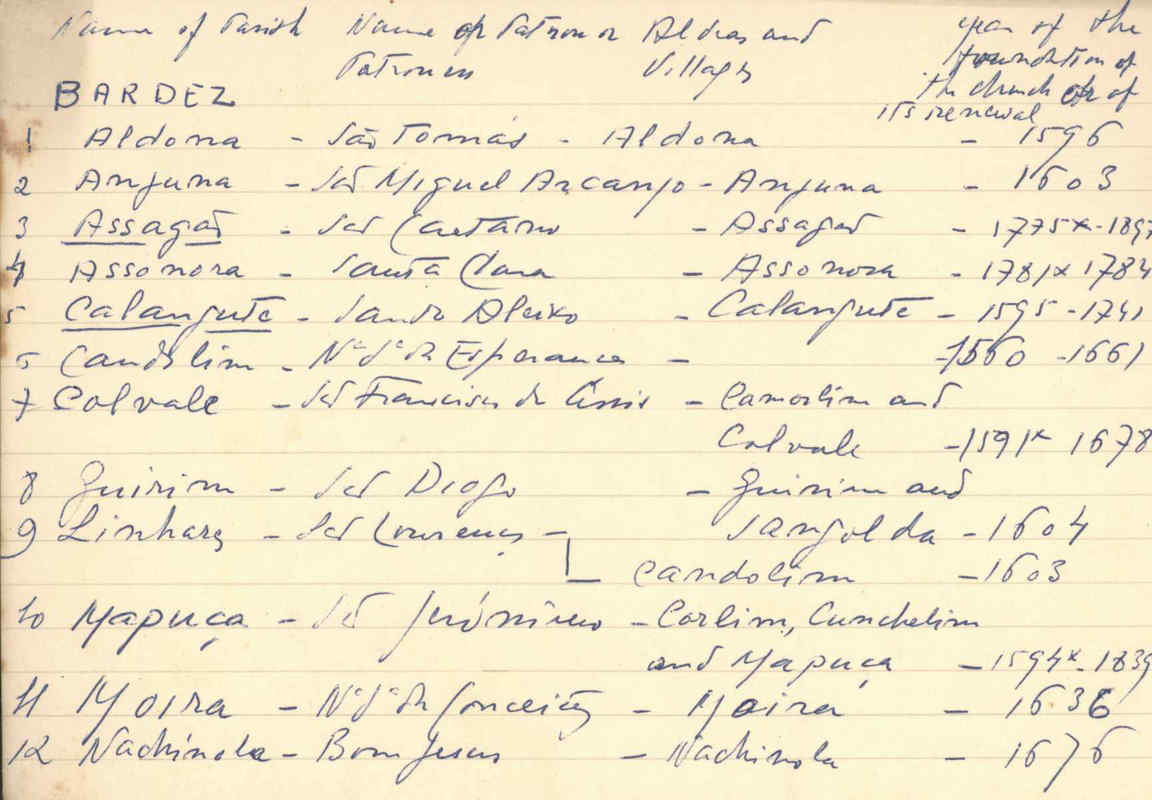 Name of Parish Name of Patron or Aldeas and year of the
Patroness Villages foundation of
BARDEZ the church or of
its renewal
1 Aldona - São Tomás - Aldona - 1596
2 Anjuna - São Miguel Arcanjo - Anjuna - 1603
3 Assagaõ - São Caetano - Assagaõ - 1775x-1897
4 Assonora - Santa Clara - Assonora - 1781x 1784
5 Calangute - Santo Aleixo - Calangute - 1595 - 1741
6 Candolim - Nª Sª da Esperança - -1560 - 1661
7 Colvale - São Francisco de Assis - Camorlim and
Colvale - 1591x 1678
8 Guirim - São Diogo - Guirim and
9 Linhares - São Lourenço - Sangolda - 1604
Candolim - 1603
10 Mapuça - São Jerónimo - Corlim, Cunchelim
and Mapuça - 1594x-1839
11 Moira - Nª Sª da Conceição - Moira - 1636
12 Nachinola - Bom Jesus - Nachinola - 1676